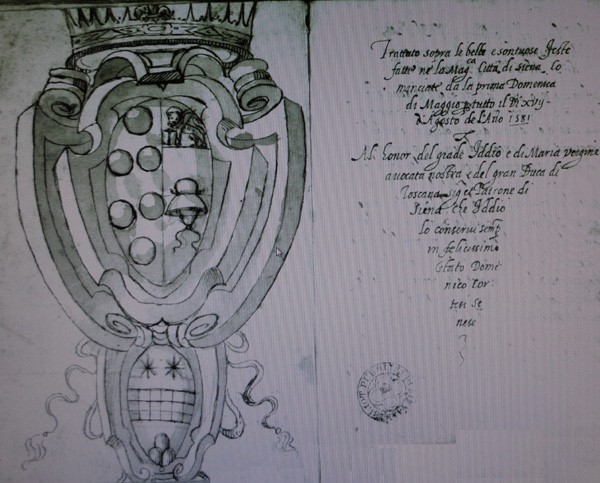 Trattato sopra le belle e sontuose feste
fatte ne la Mag.ca Città di Siena co
minciate da la prima Domenica
di Maggio p tutto il dì XVIJ
d'Agosto de l'Ano 1581
Al honor del grãde Iddio e di Maria vergine
avocata nostra e del gran Duca di
Toscana sig.r e Patrone di
Siena che Iddio
lo conservi semp
in felicissimo
stato Dome
nico Tor
tesi Se
nese